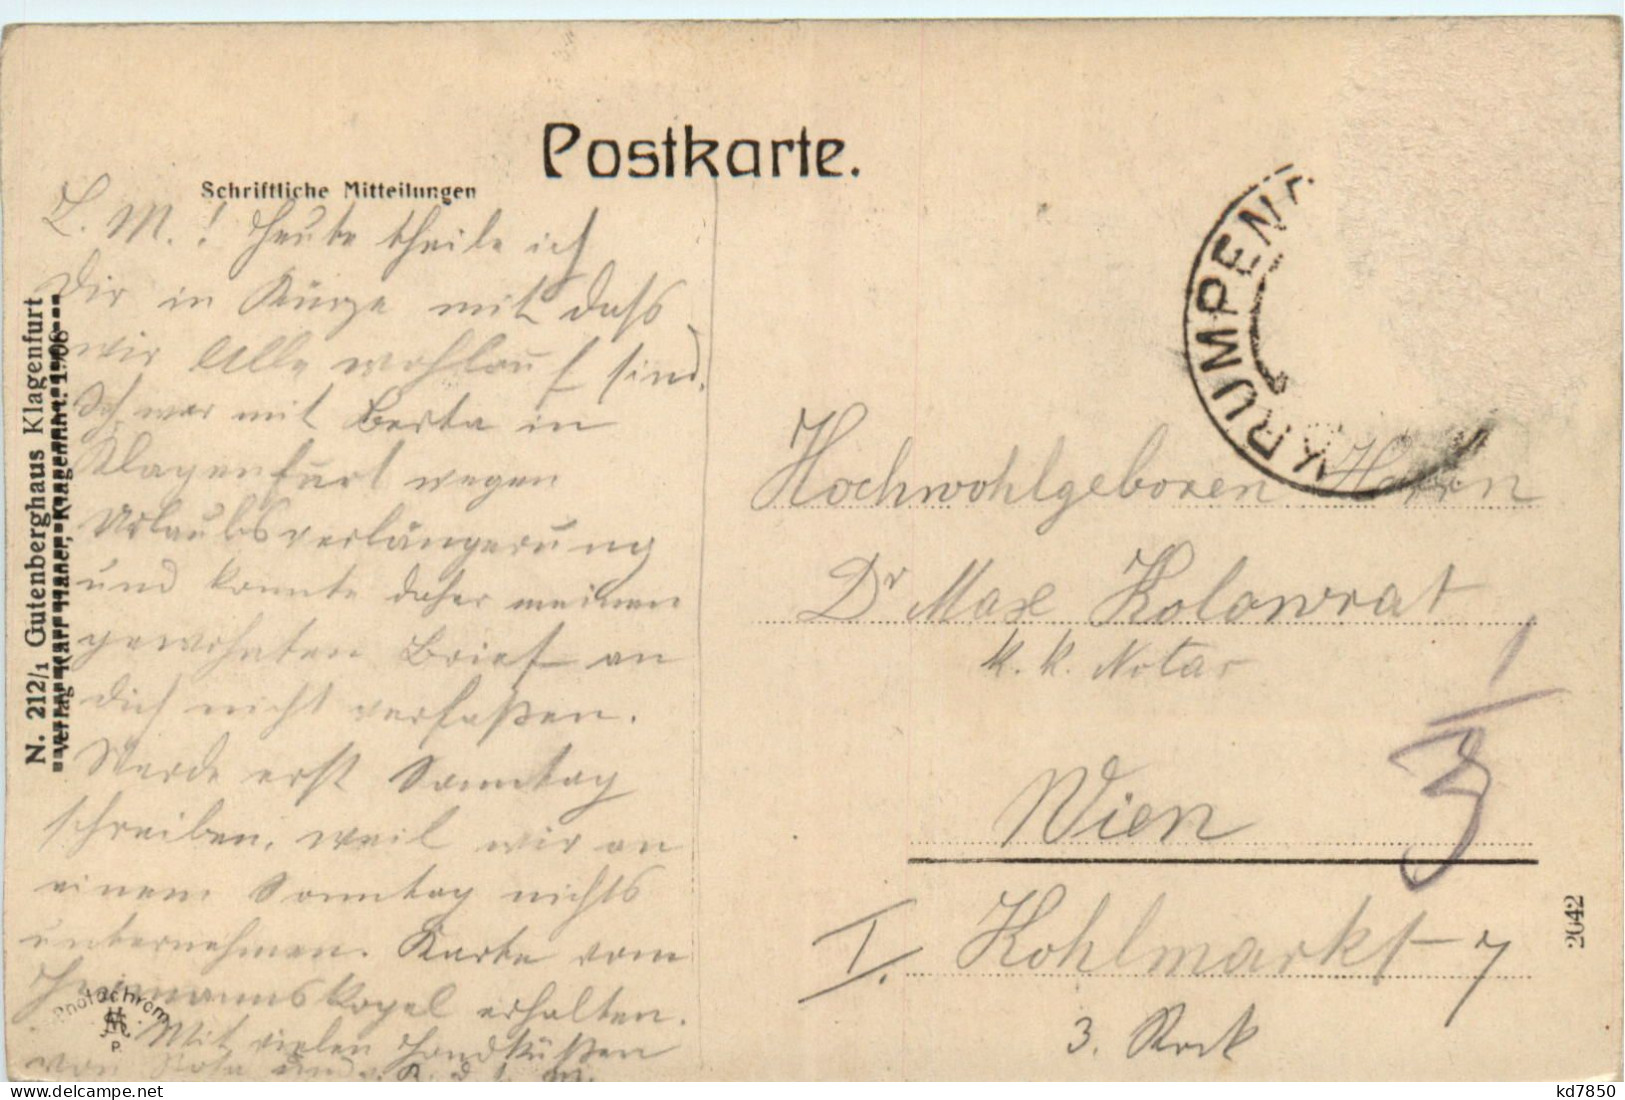 Postkarte.
Schriftliche Mitteilungen
L. M.! Heute theile ich
Dir in Kürze mit dass
wir Alle wohlauf sind.
Ich war mit Berta in
Klagenfurt wegen
Urlaubsverlängerung
und konnte daher meinen
gewohnten Brief an
dich nicht verfaßen.
Werde erst Sonntag
schreiben, weil wir an
einem Sonntag nichts
unternehmen. Karte vom
Hermannskogel erhalten.
Mit vielen Handküßen
von und
N. 212/1 Gutenberghaus Klagenfurt
Verlag Karl Klagenfurt. 1908
Photochrom
P.
KRUMPEND
Hochwohlgeboren Herrn
Dr Max Kolowrat
k. k. Notar
Wien
I. Kohlmarkt 7
3. Stock
1/3
2042
kd7850